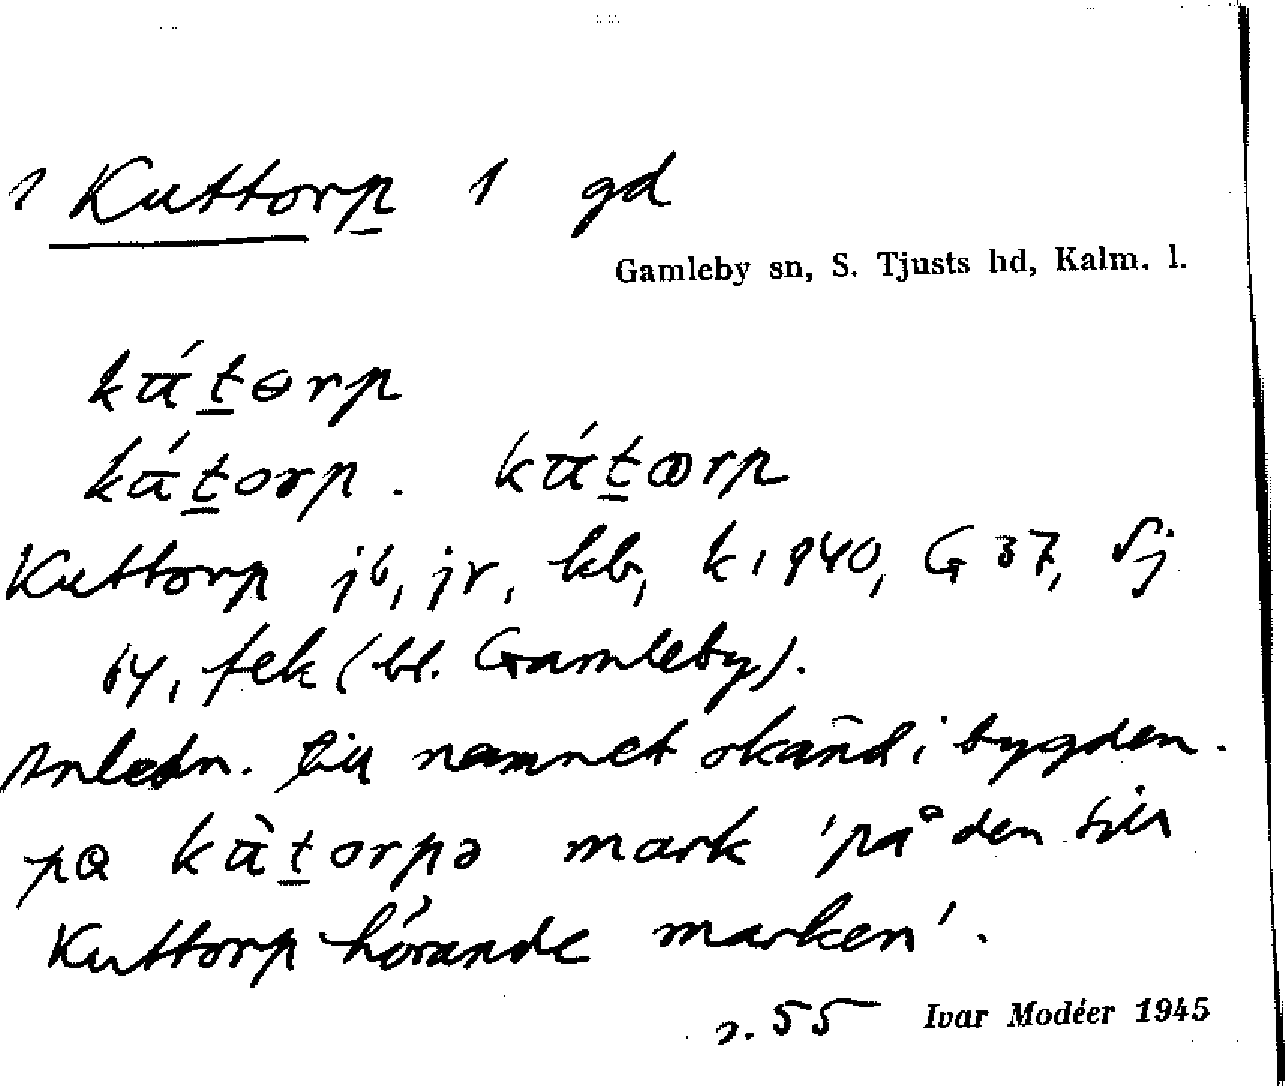 1 Kuttorp 1 gd
Gamleby sn, S. Tjusts hd, Kalm. l.
kútorp
kútorp. kútœrp
Kuttorp jb, jr, kb, k 1940, G 37, Sj
by, fek (bl. Gamleby).
Anledn. till namnet okänd i bygden.
pα kùtorpə mark 'på den till
Kuttorp hörande marken'.
s. 55 Ivar Modéer 1945